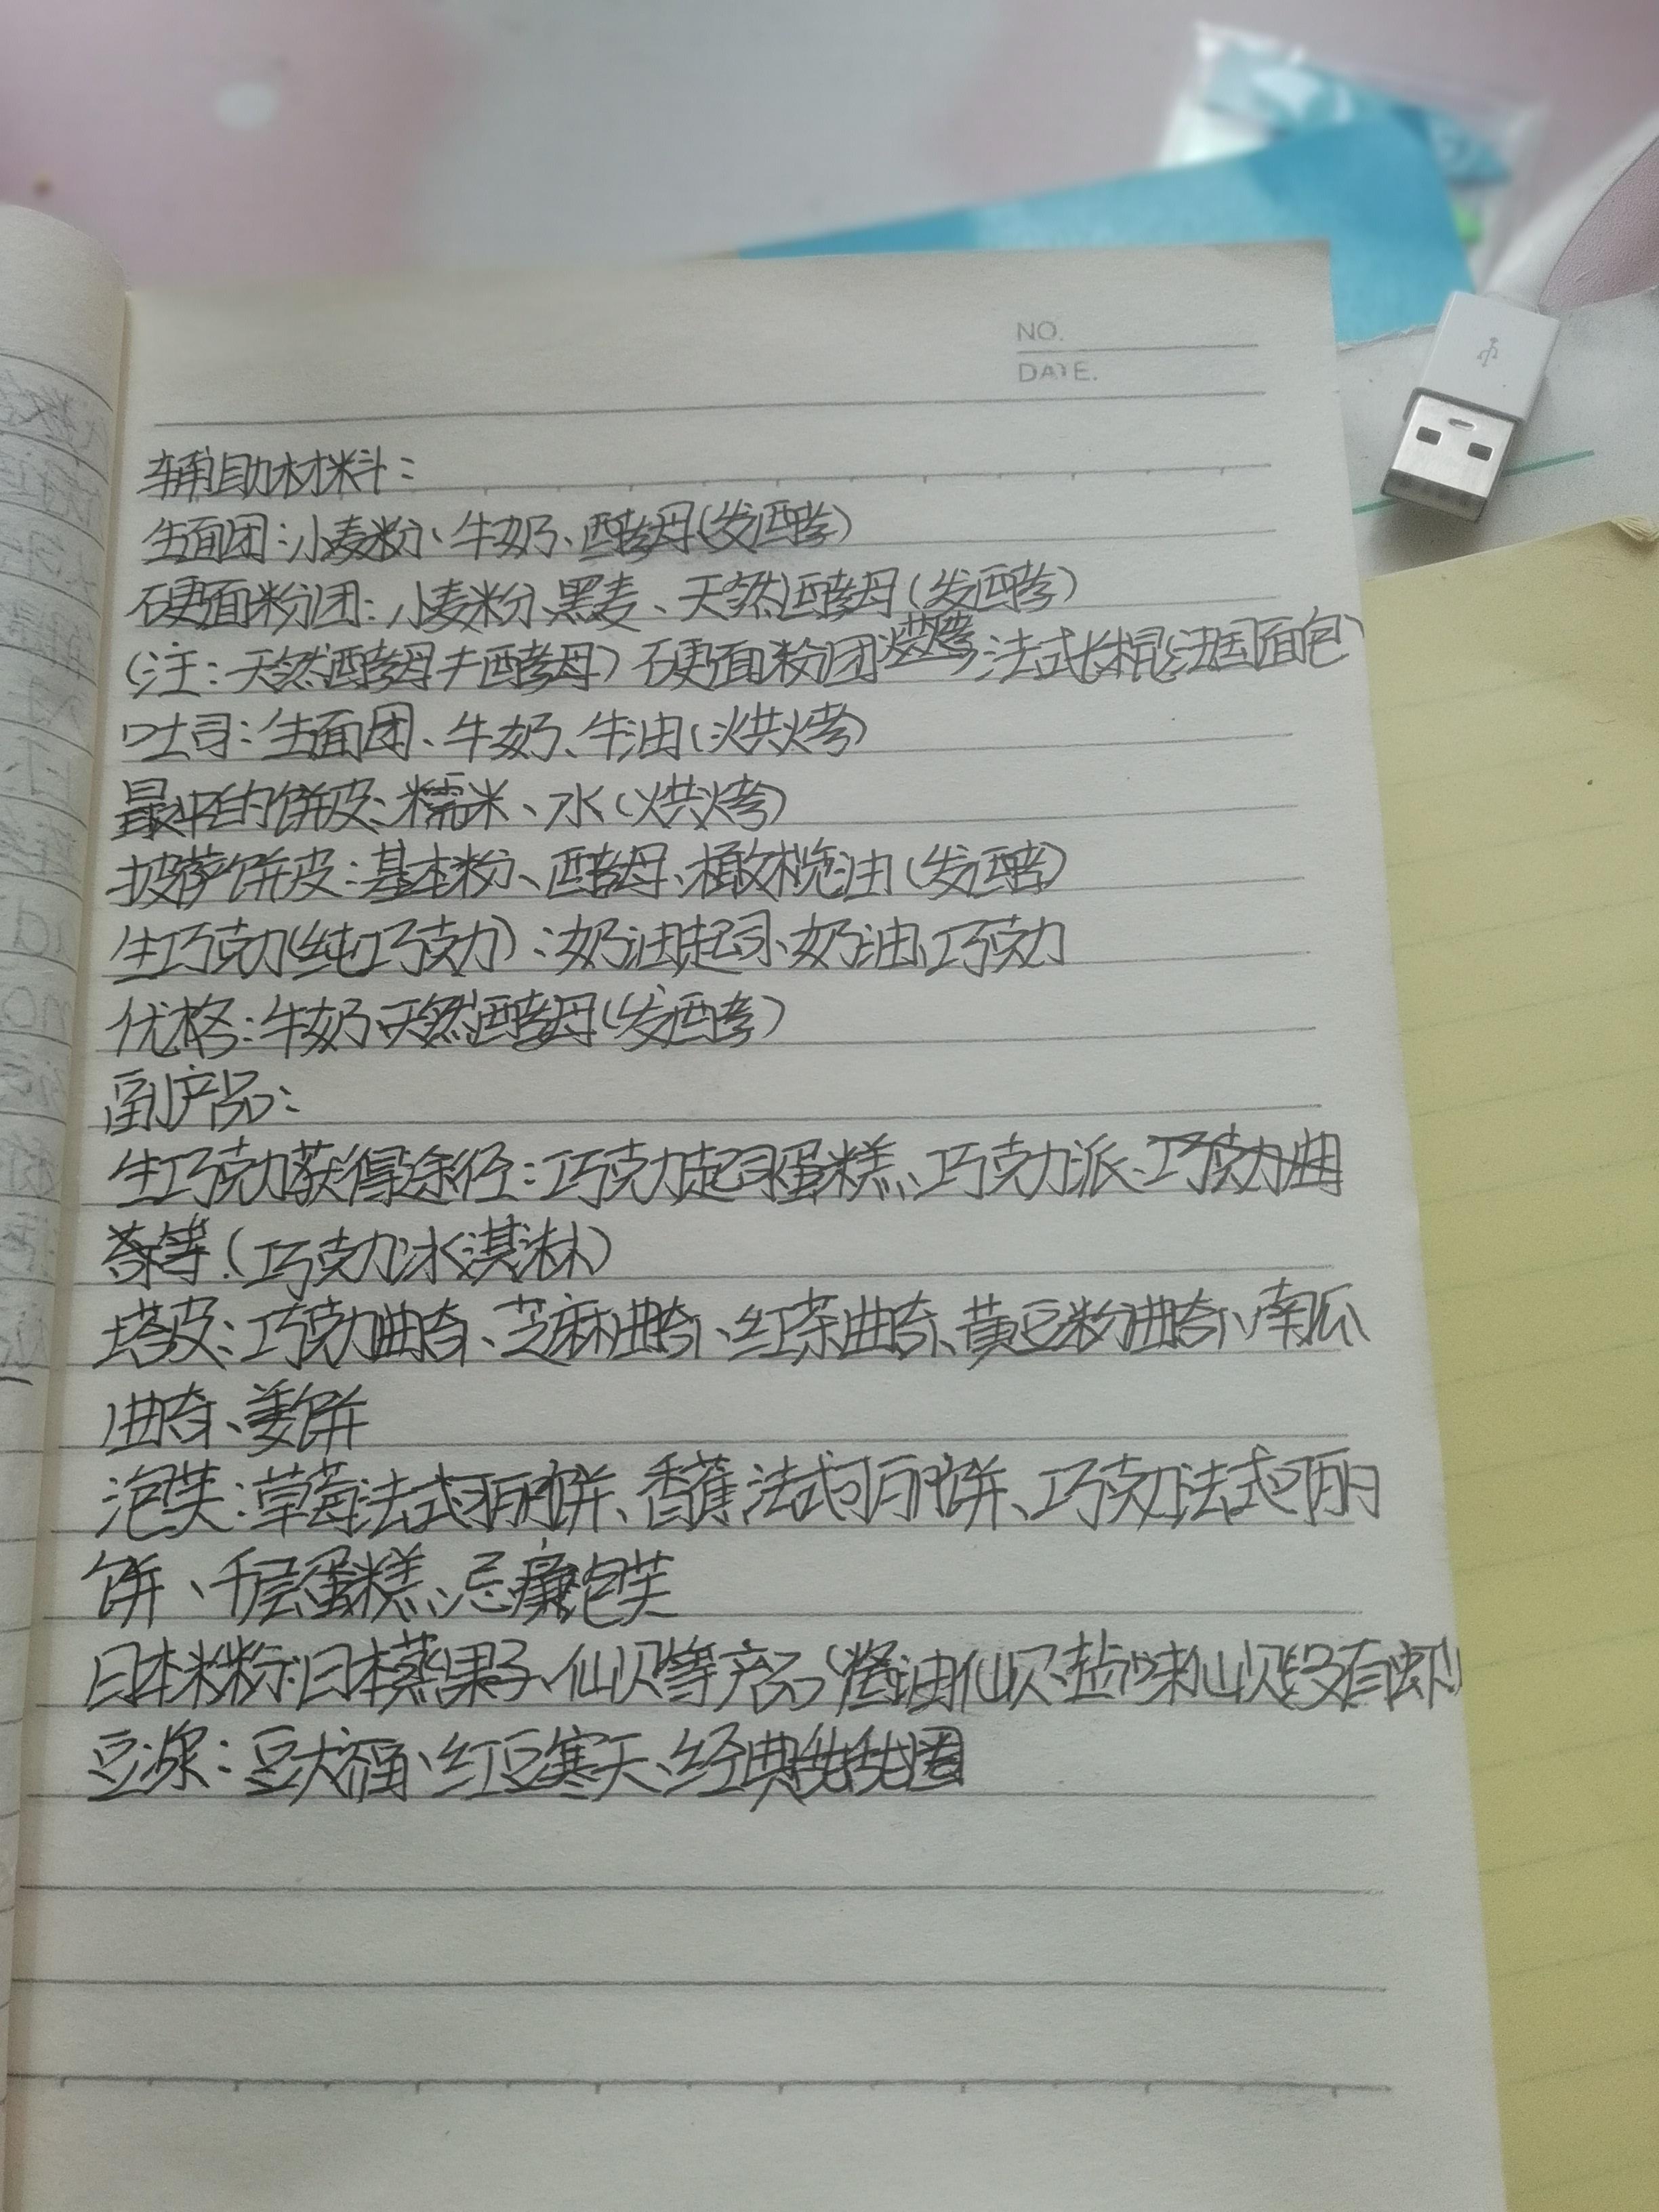 NO.
DATE.
辅助材料:
生面团:小麦粉、牛奶、酵母(发酵)
硬面粉团:小麦粉、黑麦、天然酵母(发酵)
(注:天然酵母≠酵母)硬面粉团烘烤→法式长棍(法国面包)
吐司:生面团、牛奶、牛油(烘烤)
最中的饼皮:糯米、水(烘烤)
披萨饼皮:基本粉、酵母、橄榄油(发酵)
生巧克力(纯巧克力):奶油起司、奶油、巧克力
优格:牛奶、天然酵母(发酵)
副产品:
生巧克力获得途径:巧克力起司蛋糕、巧克力派、巧克力曲
奇等.(巧克力冰淇淋)
塔皮:巧克力曲奇、芝麻曲奇、红茶曲奇、黄豆粉曲奇、南瓜
曲奇、姜饼
泡芙:草莓法式可丽饼、香蕉法式可丽饼、巧克力法式可丽
饼、千层蛋糕、忌廉泡芙
日本米粉:日本蒸果子、仙贝等产品(酱油仙贝、盐味仙贝没有虾)
豆浆:豆大福、红豆寒天、经典甜甜圈